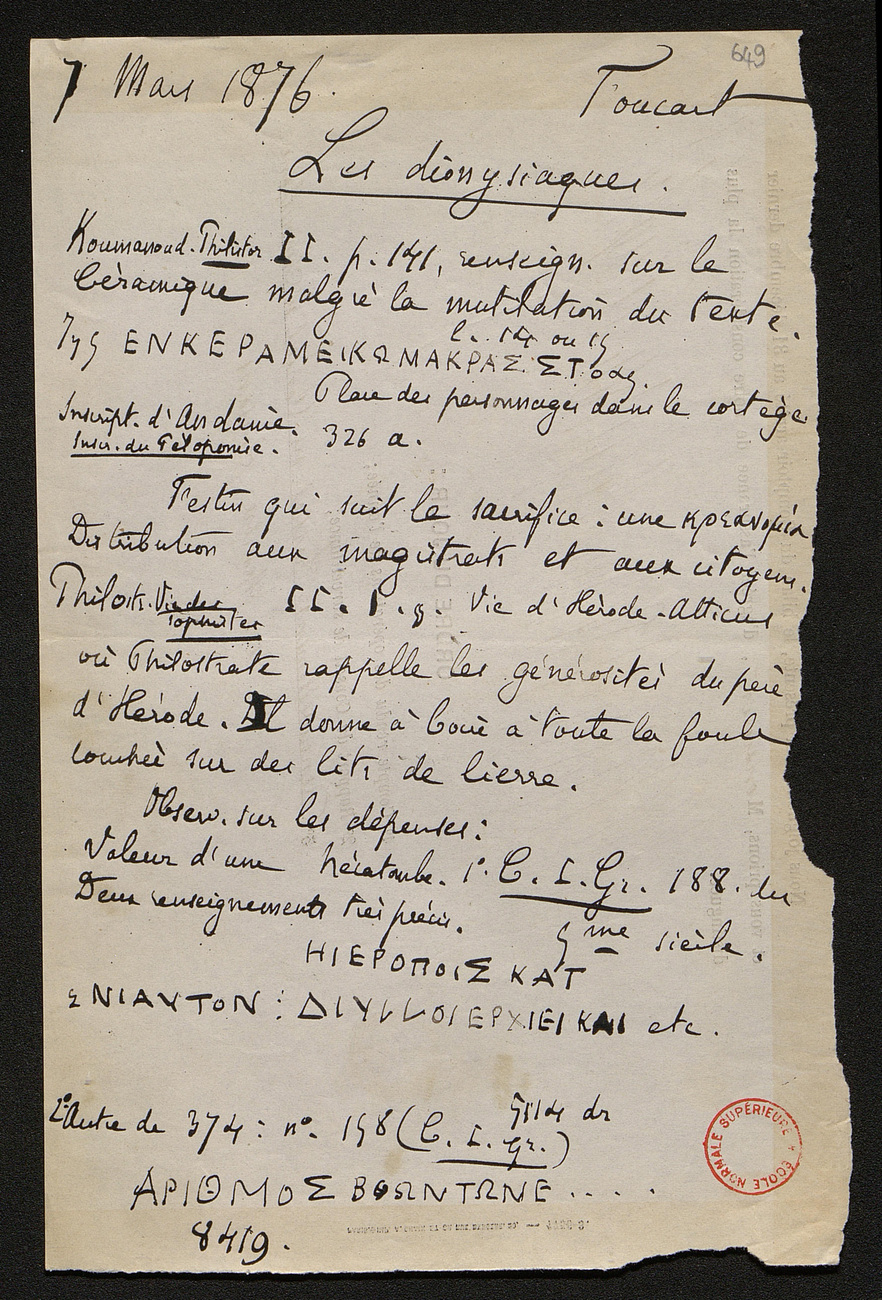 649
7 Mars 1876. Foucart
Les dionysiaques.
Koumanoud. Philistor II. p. 141, renseign. sur le
Céramique malgré la mutilation du texte.
l. 14 ou 15
ΕΝΚΕΡΑΜΕΙΚΩΜΑΚΡΑΣ ΣΤοας
Place des personnages dans le cortège
Inscript. d'Andanie.
Inscr. du Péloponèse. 326 a.
Festin qui suit le sacrifice : une κρεανομία
Distribution aux magistrats et aux citoyens.
Philostr. Vie des sophistes II. 1. 5. Vie d'Hérode-Atticus
où Philostrate rappelle les générosités du père
d'Hérode. Il donne à boire à toute la foule
couchée sur des lits de lierre.
Observ. sur les dépenses :
Valeur d'une hécatombe. 1° C. I. Gr. 188. du
Deux renseignements très précis. 5me siècle.
ΗΙΕΡΟΠΟΙΣ ΚΑΤ
ΕΝΙΑΥΤΟΝ : ΔΙΥΛΛΟΙΕΡΧΙΕΙ ΚΑΙ etc.
2° Autre de 374 : n°. 158 (C. I. Gr.) 5114 dr
ΑΡΙΘΜΟΣ ΒΟΩΝΤΩΝΕ . . . .
8419.
ÉCOLE NORMALE SUPÉRIEURE